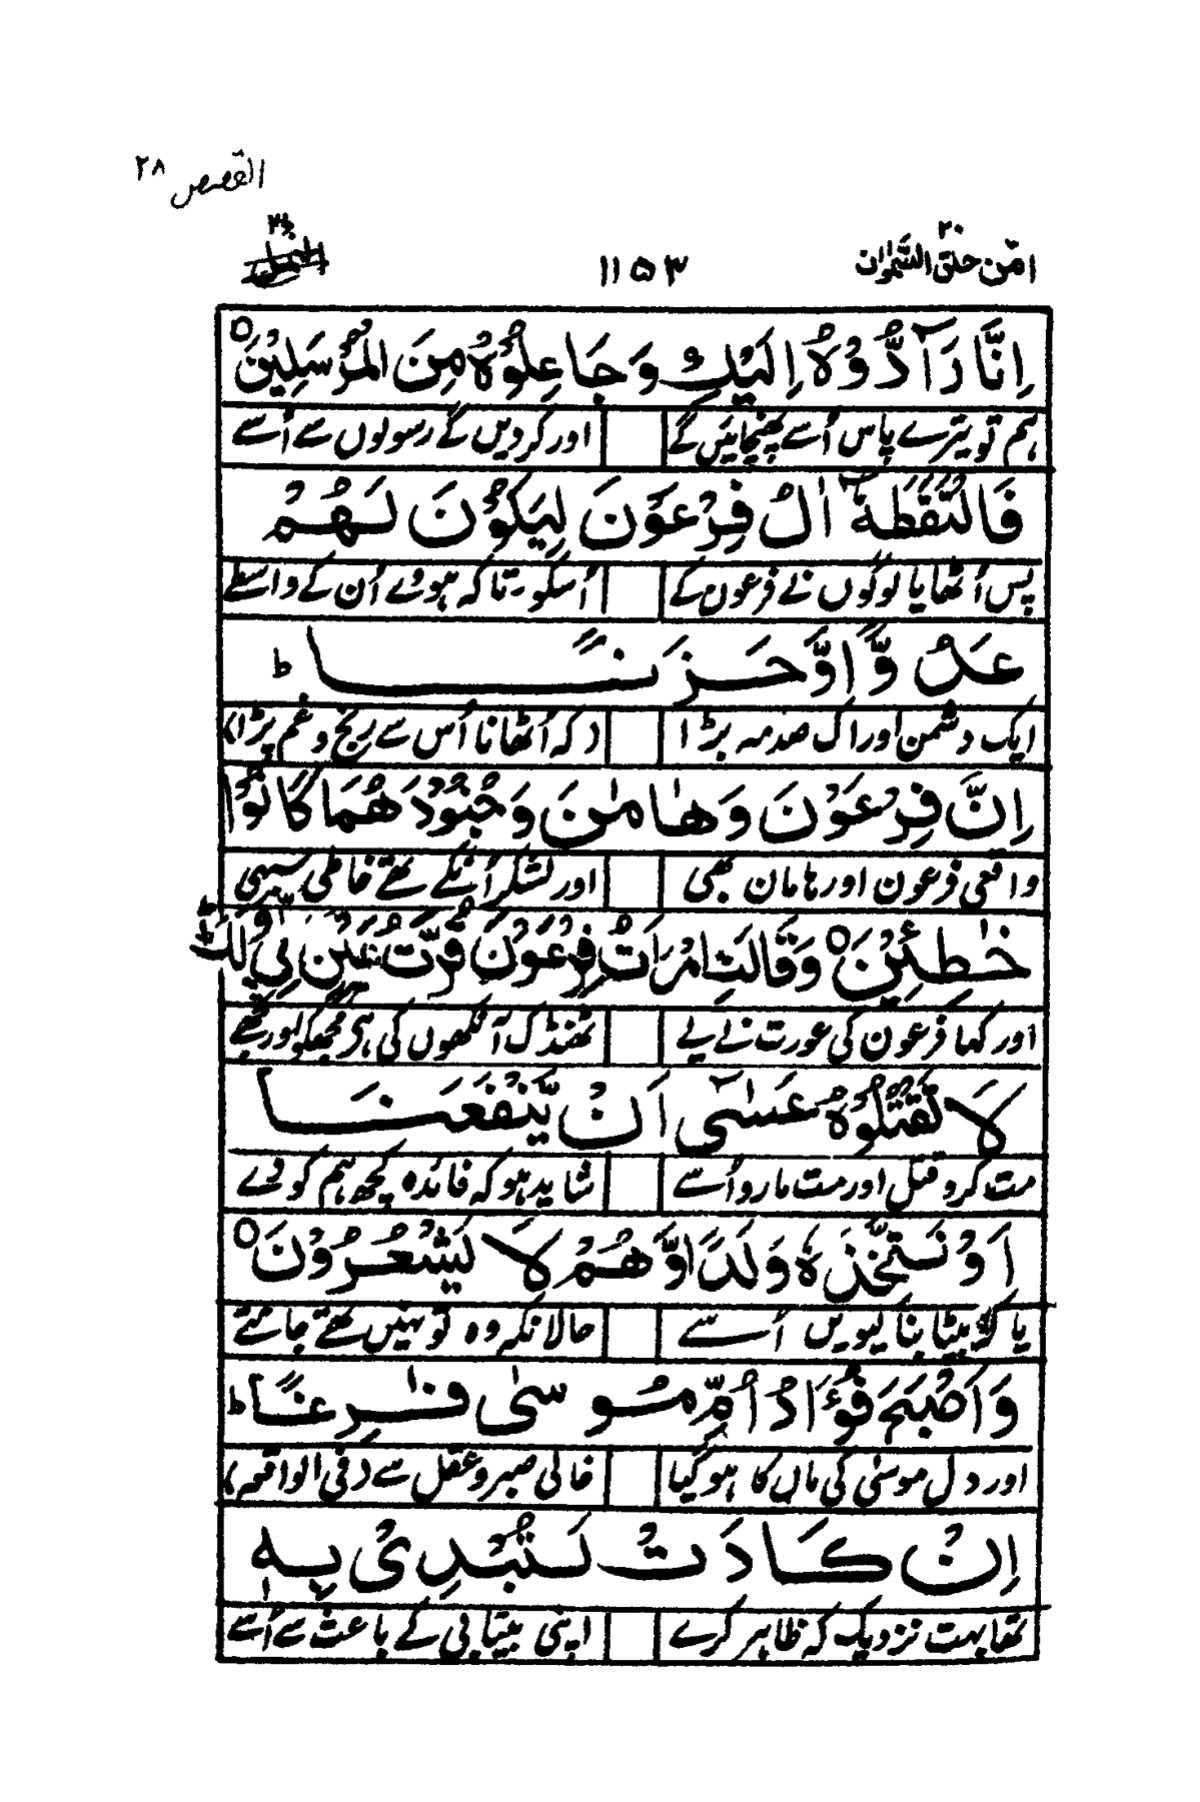 القصص ۲۸
امّن خلق السّمٰوات ۲۰
۱۱۵۳
اِنَّا رَآدُّوْهُ اِلَيْكِ وَجَاعِلُوْهُ مِنَ الْمُرْسَلِيْنَ ○
ہم تو تیرے پاس اُسے پہنچائیں گے اور کر دیں گے رسولوں سے اُسے
فَالْتَقَطَهٗٓ اٰلُ فِرْعَوْنَ لِيَكُوْنَ لَهُمْ
پس اُٹھایا لوگوں نے فرعون کے اُسکو۔ تا کہ ہووے اُن کے واسطے
عَدُوًّا وَّحَزَنًا ط
ایک دشمن اور اک صدمہ بڑا (کہ اُٹھانا اُس سے رنج و غم پڑا)
اِنَّ فِرْعَوْنَ وَهَامٰنَ وَجُنُوْدَهُمَا كَانُوْا
واقعی فرعون اور ہامان بھی اور لشکر اُنکے تھے خاطی سبھی
خٰطِئِيْنَ ○ وَقَالَتِ امْرَاَتُ فِرْعَوْنَ قُرَّتُ عَيْنٍ لِّيْ وَلَكَ ط
اور کہا فرعون کی عورت نے یے ٹھنڈک آنکھوں کی ہی مجھکو اور تجھے
لَا تَقْتُلُوْهُ عَسٰٓى اَنْ يَّنْفَعَنَا
مت کرو قتل اور مت مارو اُسے شاید ہو کہ فائدہ کچھ ہم کو دے
اَوْ نَتَّخِذَهٗ وَلَدًا وَّهُمْ لَا يَشْعُرُوْنَ ○
یا کہ بیٹا بنا لیویں اُسے حالانکہ وہ تو نہیں تھے جانتے
وَاَصْبَحَ فُؤَادُ اُمِّ مُوْسٰى فٰرِغًا ط
اور دل موسیٰ کی ماں کا ہو گیا خالی صبر و عقل سے (فی الواقعہ)
اِنْ كَادَتْ لَتُبْدِيْ بِهٖ
تھا بہت نزدیک کہ ظاہر کرے اپنی بیتابی کے باعث سے اُسے